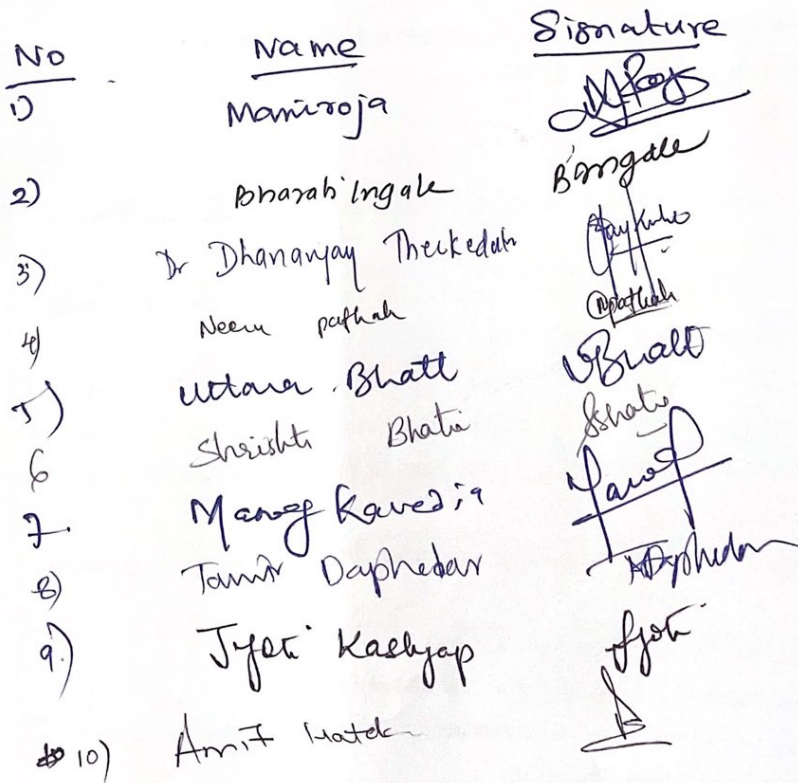 No Name Signature
1) Maniroja
2) Bharati Ingale BIngale
3) Dr Dhananjay Theckedath
4) Neeru pathak Npathak
5) Uttara Bhatt UBhatt
6 Shrishti Bhatia SBhatia
7. Manoj Kavedia
8) Tanvir Daphedar TDaphedar
9.) Jyoti Kashyap Jyoti
10) Amit